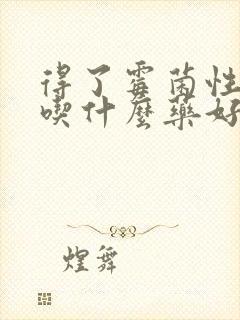 得了霉菌性
喫什麼藥好
煌舞